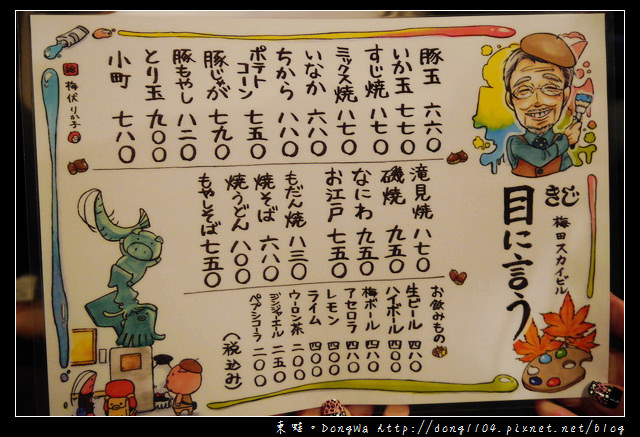 きじ
梅田スカイビル
目に言う
豚玉 六六〇
いか玉 七七〇
すじ焼 八七〇
ミックス焼 八七〇
いなか 六八〇
ちから 八八〇
ポテトコーン 七五〇
豚じゃが 七九〇
豚もやし 八二〇
とり玉 九〇〇
小町 七八〇
梅伏りか子
滝見焼 八七〇
磯焼 九五〇
なにわ 九五〇
お江戸 七五〇
もだん焼 八三〇
焼そば 六八〇
焼うどん 八〇〇
もやしそば 七五〇
お飲みもの
生ビール 四八〇
ハイボール 四〇〇
梅ボール 四八〇
アセロラ 四八〇
レモン 四〇〇
ライム 四〇〇
ウーロン茶 二〇〇
ジンジャーエール 二五〇
ペプシコーラ 二〇〇
(税込み)
東蛙。DongWa http://dong1104.pixnet.net/blog